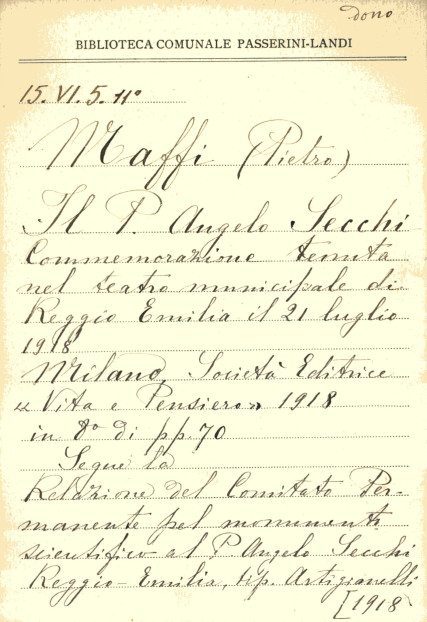 dono
BIBLIOTECA COMUNALE PASSERINI-LANDI
15.VI.5.11°
Maffi (Pietro)
Il P. Angelo Secchi
Commemorazione tenuta
nel teatro municipale di
Reggio Emilia il 21 luglio
1918
Milano, Società Editrice
« Vita e Pensiero » 1918
in 8° di pp. 70
Segue la
Relazione del Comitato Per-
manente pel monumento
scientifico al P. Angelo Secchi
Reggio-Emilia, tip. Artigianelli
[1918